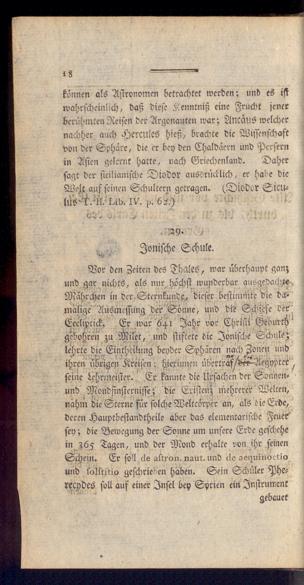 18
können als Astronomen betrachtet werden; und es ist
wahrscheinlich, daß diese Kenntniß eine Frucht jener
berühmten Reisen der Argonauten war; Antäus welcher
nachher auch Hercules hieß, brachte die Wissenschaft
von der Sphäre, die er bey den Chaldäern und Persern
in Asien gelernt hatte, nach Griechenland. Daher
sagt der sicilianische Diodor ausdrücklich, er habe die
Welt auf seinen Schultern getragen. (Diodor Sicu-
lus T. II. Lib. IV. p. 62.)
29.
Jonische Schule.
Vor den Zeiten des Thales, war überhaupt ganz
und gar nichts, als nur höchst wunderbar ausgedachte
Mährchen in der Sternkunde, dieser bestimmte die da-
malige Ausmessung der Sonne, und die Schiefe der
Eccliptick. Er war 641 Jahr vor Christi Geburth
gebohren zu Milet, und stiftete die Jonische Schule;
lehrte die Eintheilung beyder Sphären nach Zonen und
ihren übrigen Kreisen; hierinnen übertraf er Aegypter
seine Lehrmeister. Er kannte die Ursachen der Sonnen-
und Mondfinsternisse; die Existenz mehrerer Welten,
nahm die Sterne für solche Weltkörper an, als die Erde,
deren Hauptbestandtheile aber das elementarische Feuer
sey; die Bewegung der Sonne um unsere Erde geschehe
in 365 Tagen, und der Mond erhalte von ihr seinen
Schein. Er soll de astron. naut. und de aequinoctio
und solstitio geschrieben haben. Sein Schüler Phe-
recydes soll auf einer Insel bey Syrien ein Instrument
gebauet